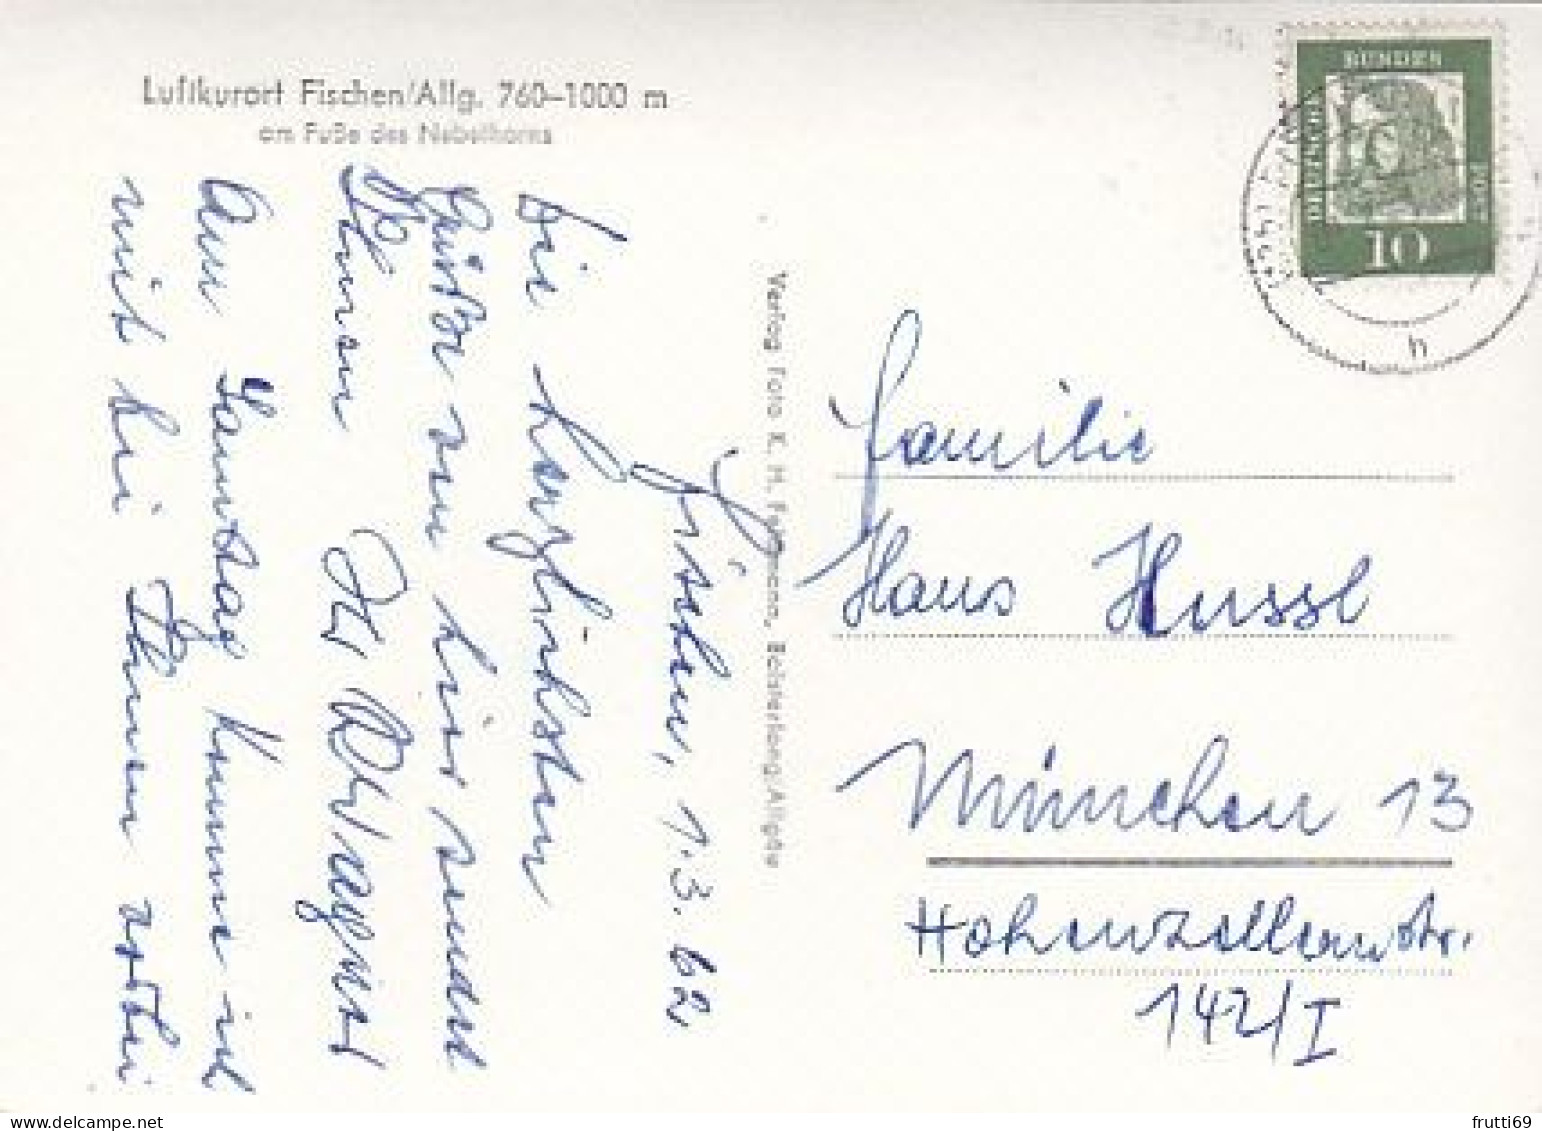 Luftkurort Fischen/Allg. 760–1000 m
am Fuße des Nebelhorns
Fischen, 1.3.62
Die herzlichsten
Grüße von hier sendet
Ihnen Ihr
Am Samstag komme ich
mit bei Ihnen vorbei
Verlag Foto K. H. Bolsterlang/Allgäu
DEUTSCHE
BUNDES
POST
10
h
Familie
Haus Hussl
München 13
Hohenzollernstr.
142/I
frutti69